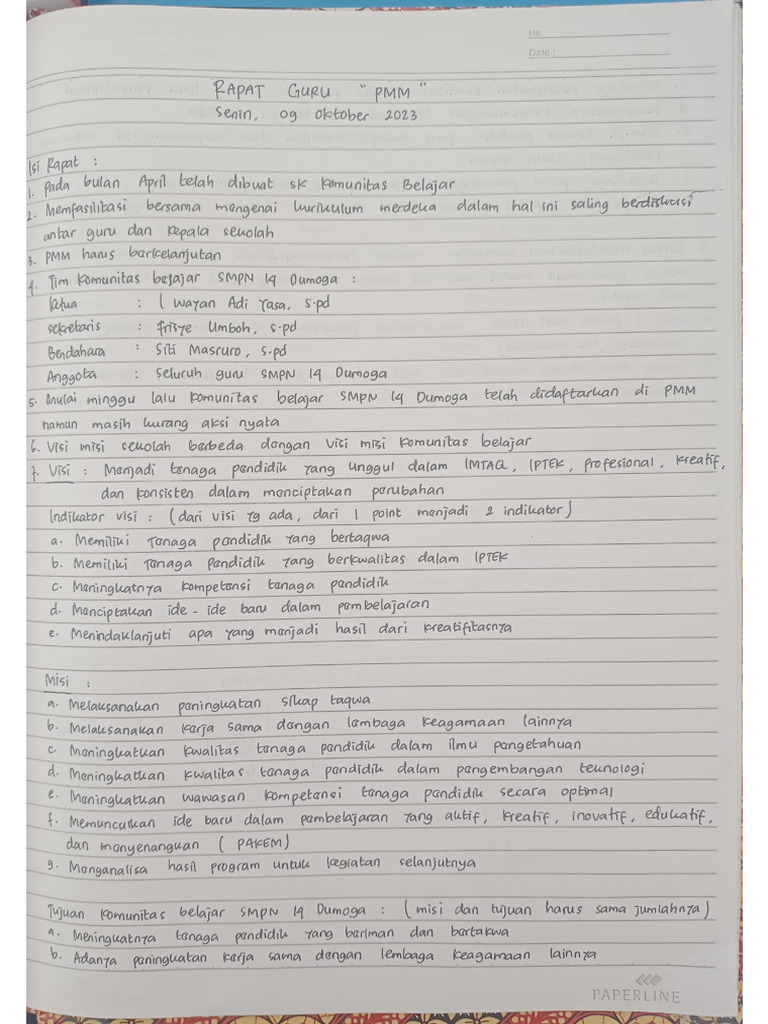 No.
Date :
RAPAT GURU "PMM"
Senin, 09 Oktober 2023
Isi Rapat :
1. Pada bulan April telah dibuat SK Komunitas Belajar
2. Memfasilitasi bersama mengenai kurikulum merdeka dalam hal ini saling berdiskusi
antar guru dan kepala sekolah
3. PMM harus berkelanjutan
4. Tim Komunitas belajar SMPN 14 Dumoga :
Ketua : I Wayan Adi Yasa, S.pd
Sekretaris : Frisye Umboh, S.pd
Bendahara : Siti Masruro, S.pd
Anggota : Seluruh guru SMPN 14 Dumoga
5. Mulai minggu lalu komunitas belajar SMPN 14 Dumoga telah didaftarkan di PMM
namun masih kurang aksi nyata
6. Visi misi sekolah berbeda dengan visi misi komunitas belajar
7. Visi : Menjadi tenaga pendidik yang unggul dalam IMTAQ, IPTEK, Profesional, Kreatif,
dan konsisten dalam menciptakan perubahan
Indikator visi : (dari visi yg ada, dari 1 point menjadi 2 indikator)
a. Memiliki Tenaga pendidik yang bertaqwa
b. Memiliki Tenaga Pendidik yang berkwalitas dalam IPTEK
c. Meningkatnya kompetensi tenaga pendidik
d. Menciptakan ide - ide baru dalam pembelajaran
e. Menindaklanjuti apa yang menjadi hasil dari kreatifitasnya
Misi :
a. Melaksanakan peningkatan sikap taqwa
b. Melaksanakan kerja sama dengan lembaga keagamaan lainnya
c. Meningkatkan kwalitas tenaga pendidik dalam ilmu pengetahuan
d. Meningkatkan kwalitas tenaga pendidik dalam pengembangan teknologi
e. Meningkatkan wawasan kompetensi tenaga pendidik secara optimal
f. Memunculkan ide baru dalam pembelajaran yang aktif, kreatif, inovatif, edukatif,
dan menyenangkan (PAKEM)
g. Menganalisa hasil program untuk kegiatan selanjutnya
Tujuan komunitas belajar SMPN 14 Dumoga : (misi dan tujuan harus sama jumlahnya)
a. Meningkatnya tenaga pendidik yang beriman dan bertakwa
b. Adanya peningkatan kerja sama dengan lembaga keagamaan lainnya
PAPERLINE